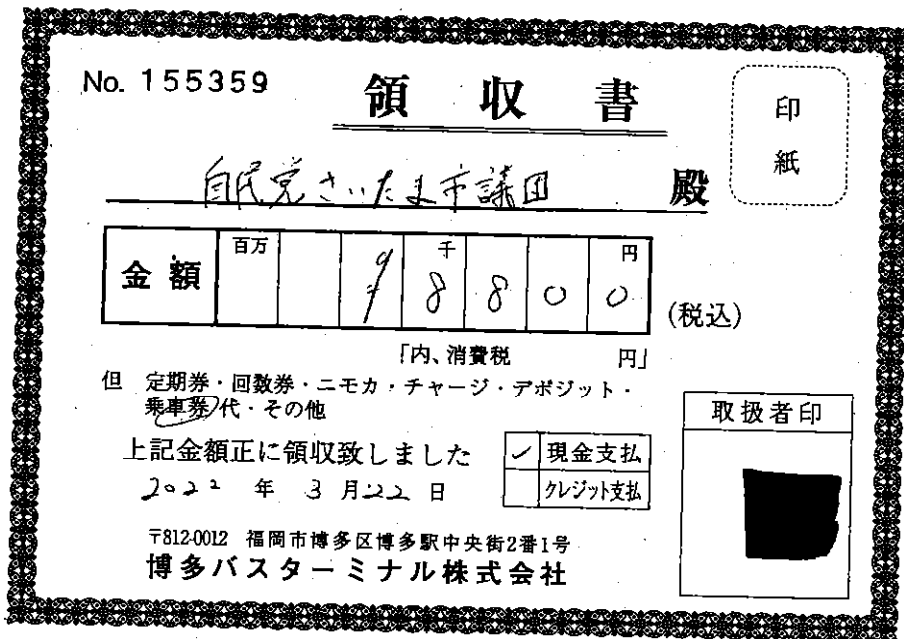 No. 155359
領収書
印紙
自民党さいたま市議団 殿
金額 百万 千 円
¥ 8 8 0 0
(税込)
「内、消費税 円」
但 定期券・回数券・ニモカ・チャージ・デポジット・
乗車券代・その他
取扱者印
上記金額正に領収致しました
✓ 現金支払
クレジット支払
2022 年 3 月 22 日
〒812-0012 福岡市博多区博多駅中央街2番1号
博多バスターミナル株式会社